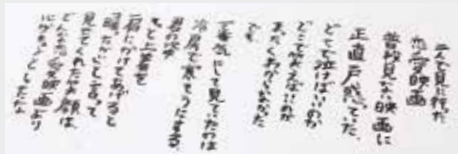 二人で見に行った
恋愛映画
普段見ない映画に
正直戸惑っていた
どこで泣けばいいのか
どこで笑えばいいのか
まったくわからなかった
でも
見ていたわ
冷房で寒そうにする
君に
そっと上着を
肩にかけてあげると
「暖かい」と言って
見せてくれた笑顔は
どんな恋愛映画より